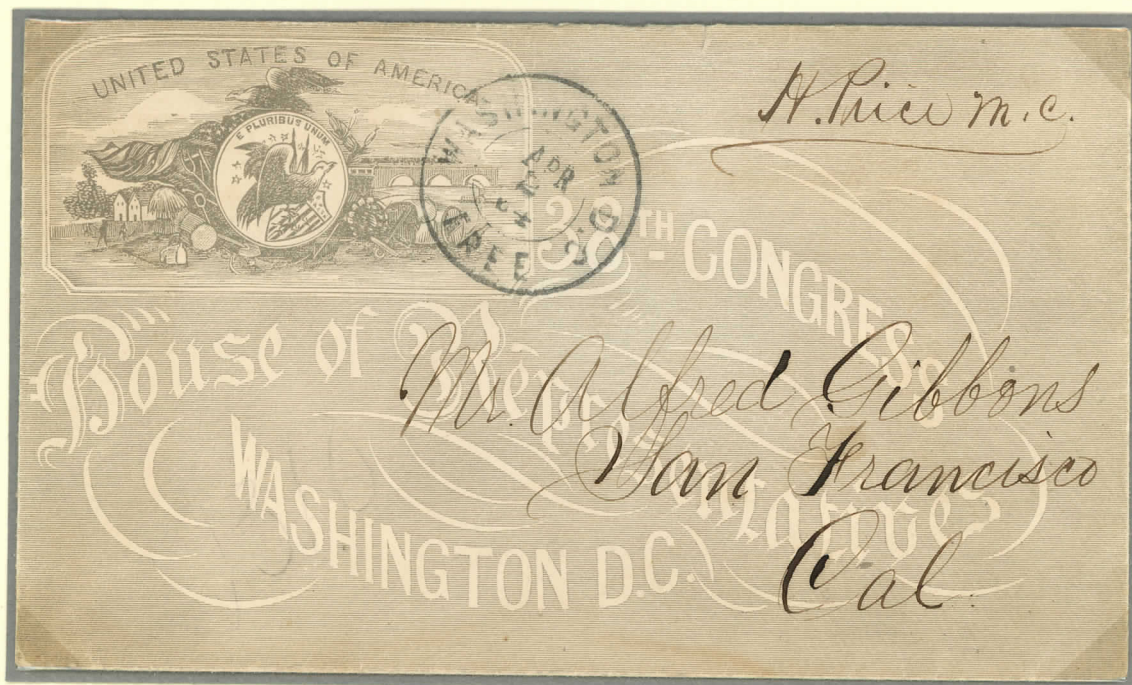 UNITED STATES OF AMERICA
E PLURIBUS UNUM
WASHINGTON D.C.
APR
FREE
H. Price M.C.
38TH CONGRESS
House of Representatives
WASHINGTON D.C.
Mr. Alfred Gibbons
San Francisco
Cal.